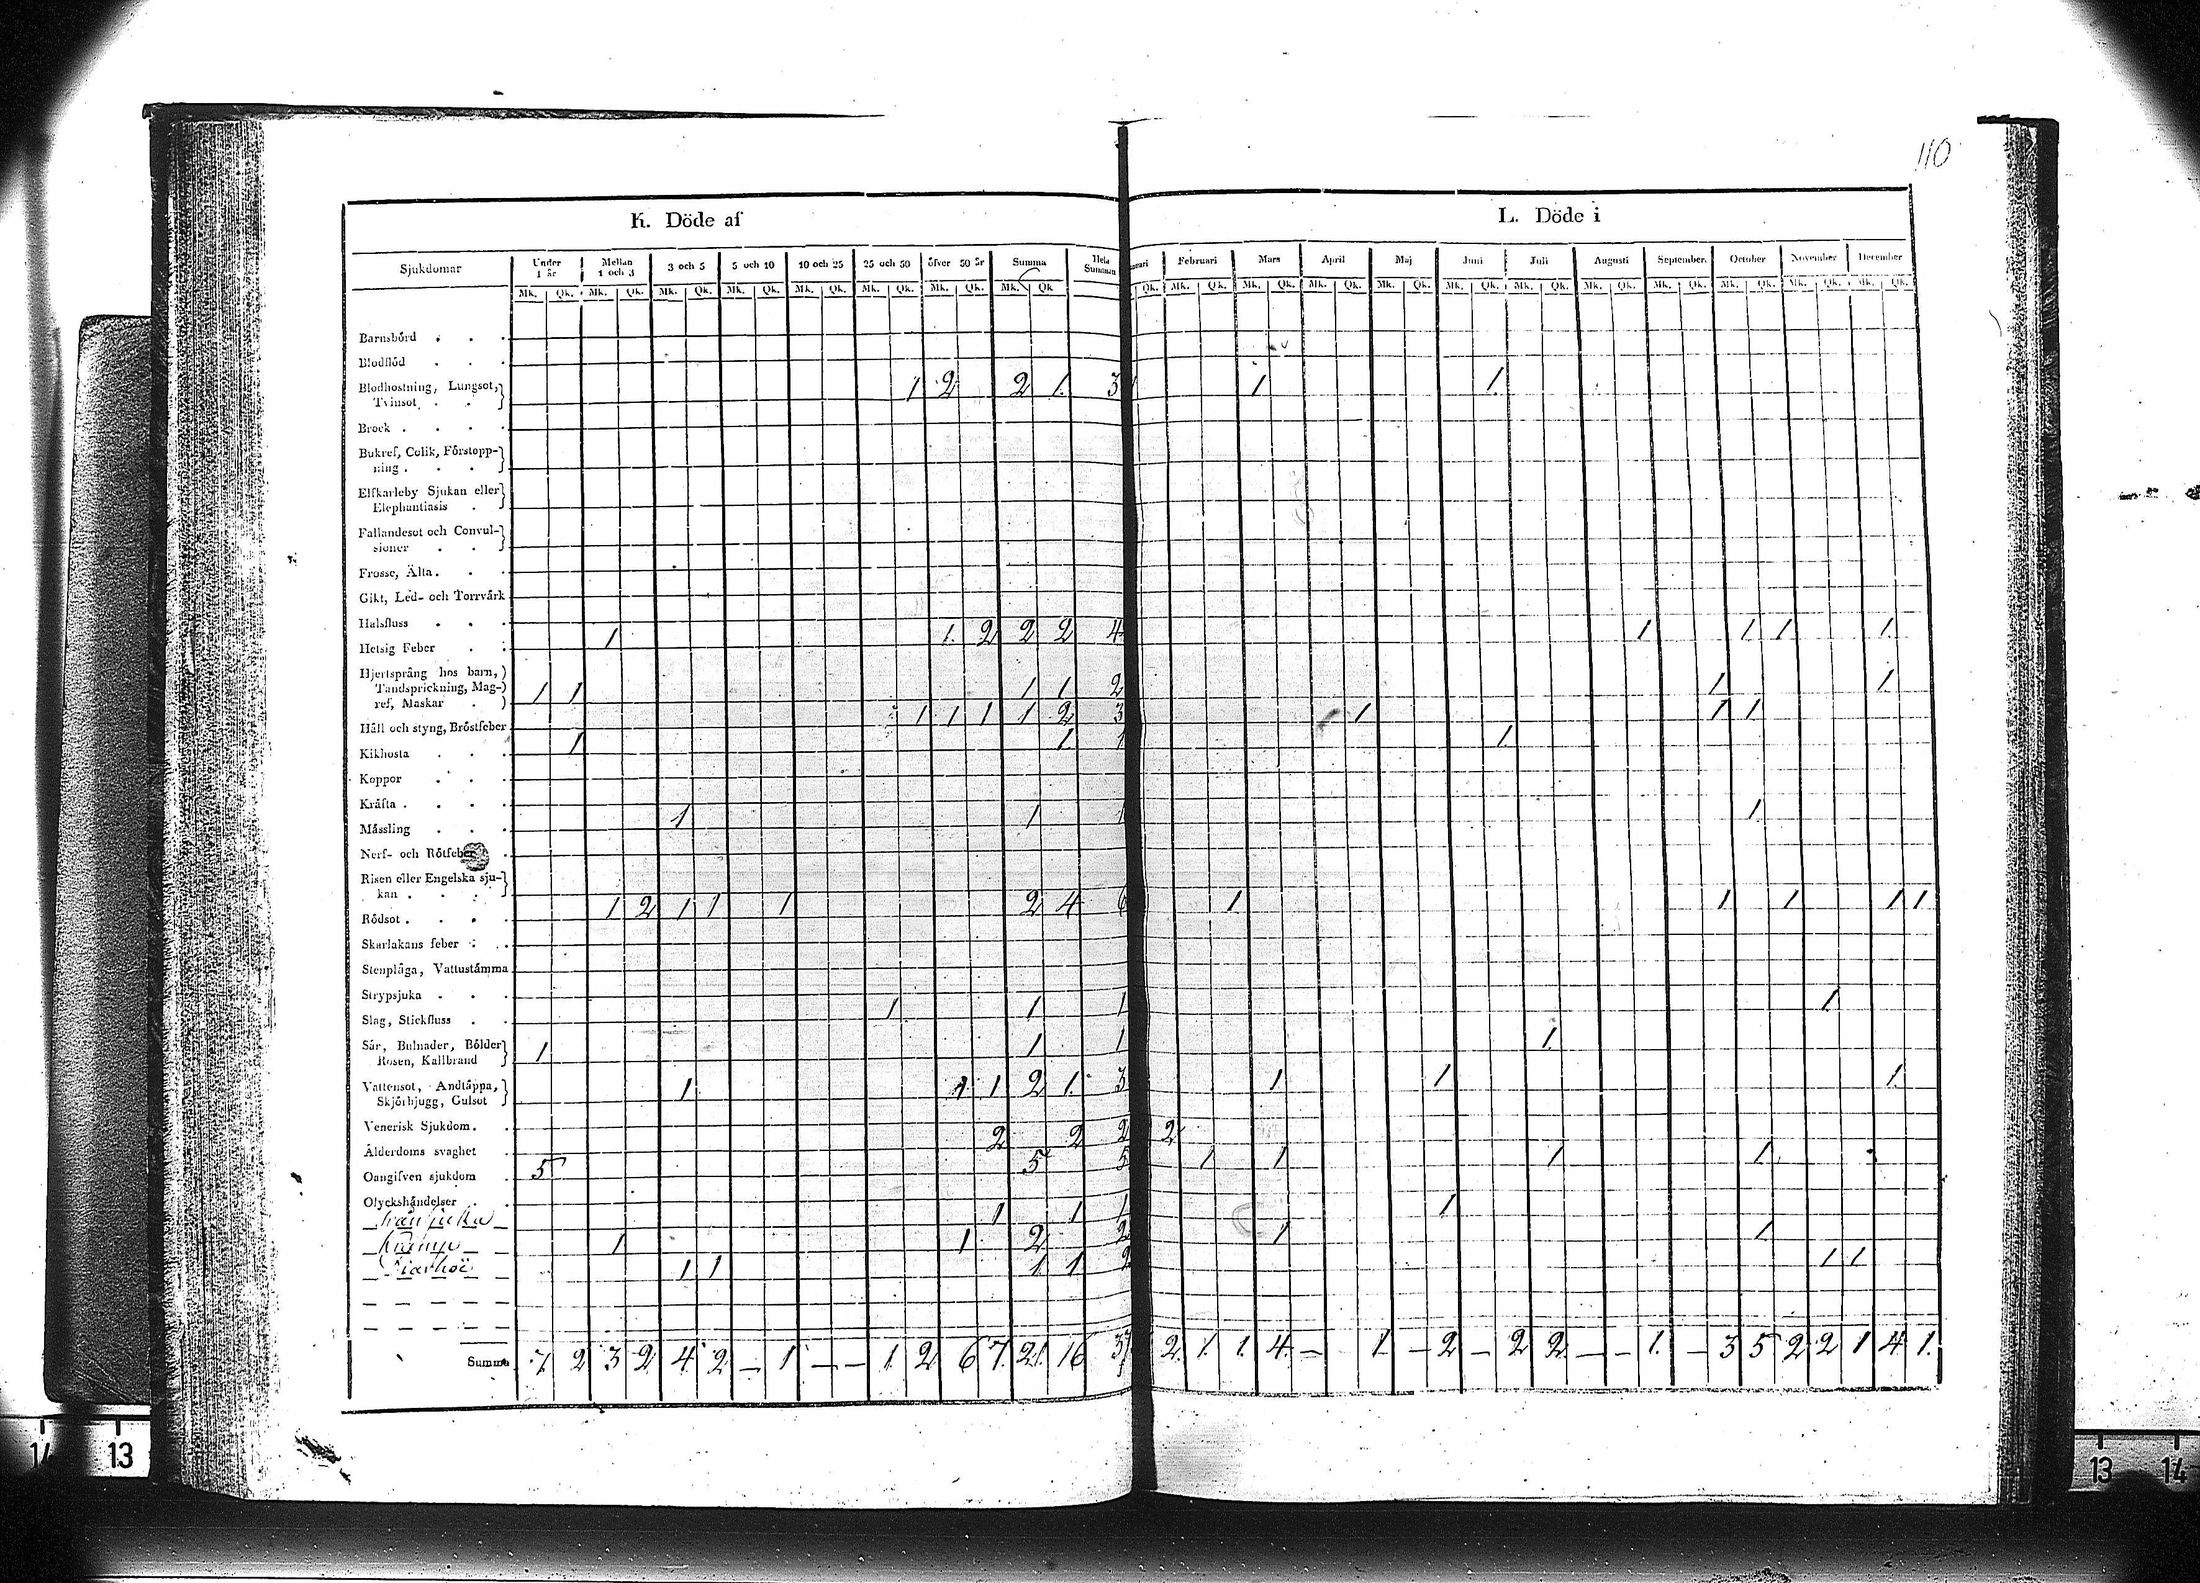 110
K. Döde af
L. Döde i
Sjukdomar Under 1 år Mellan 1 och 3 3 och 5 5 och 10 10 och 25 25 och 50 öfver 50 år Summa Hela Summan Februari Mars April Maj Juni Juli Augusti September. October November December
Mk. Qk. Mk. Qk. Mk. Qk. Mk. Qk. Mk. Qk. Mk. Qk. Mk. Qk. Mk. Qk Qk. Mk. Qk. Mk. Qk. Mk. Qk. Mk. Qk. Mk. Qk. Mk. Qk. Mk. Qk. Mk. Qk. Mk. Qk. Mk. Qk. Mk. Qk.
Barnsbörd . . .
Blodflöd . . .
Blodhostning, Lungsot,
Tvinsot . . 1 2 2 1. 3 1 1.
Brock . . . .
Bukref, Colik, Förstopp-
ning . . .
Elfkarleby Sjukan eller
Elephantiasis .
Fallandesot och Convul-
sioner . .
Frosse, Älta. . .
Gikt, Led- och Torrvärk
Halsfluss . . .
Hetsig Feber . . 1 1. 2 2 2 4 1 1. 1 1.
Hjertsprång hos barn,
Tandsprickning, Mag- 1 1 1 1 2 1 1.
ref, Maskar .
Håll och styng, Bröstfeber 1 1 1 1 2 3 1 1 1
Kikhosta . . . 1 1. 1 1
Koppor . . .
Kräfta . . . .
Mässling . . . 1 1 1 1
Nerf- och Rötfeber .
Risen eller Engelska sju-
kan . . .
Rödsot . . . . 1 2 1 1 1 2 4 6 1. 1 1 1 1
Skarlakans feber . .
Stenplåga, Vattustämma
Strypsjuka . . .
Slag, Stickfluss . . 1 1 1 1.
Sår, Bulnader, Bölder
Rosen, Kallbrand 1 1 1 1.
Vattensot, Andtäppa,
Skjörbjugg, Gulsot 1 1 1 2 1. 3 1. 1. 1.
Venerisk Sjukdom. .
Ålderdoms svaghet . 2 2 2 2
Oangifven sjukdom . 5 5 5 1 1 1 1.
Olyckshändelser .
1 1 1 1
Kramp 1 1 2 2 1 1
Diarhoe 1 1 1 1 2 1 1
Summa 7 2 3 2 4 2 — 1 — — 1. 2 6 7. 21. 16 37 2. 1. 1. 4. — 1. — 2 — 2 2. — — 1. — 3 5 2 2 1 4 1.
14 13
13 14